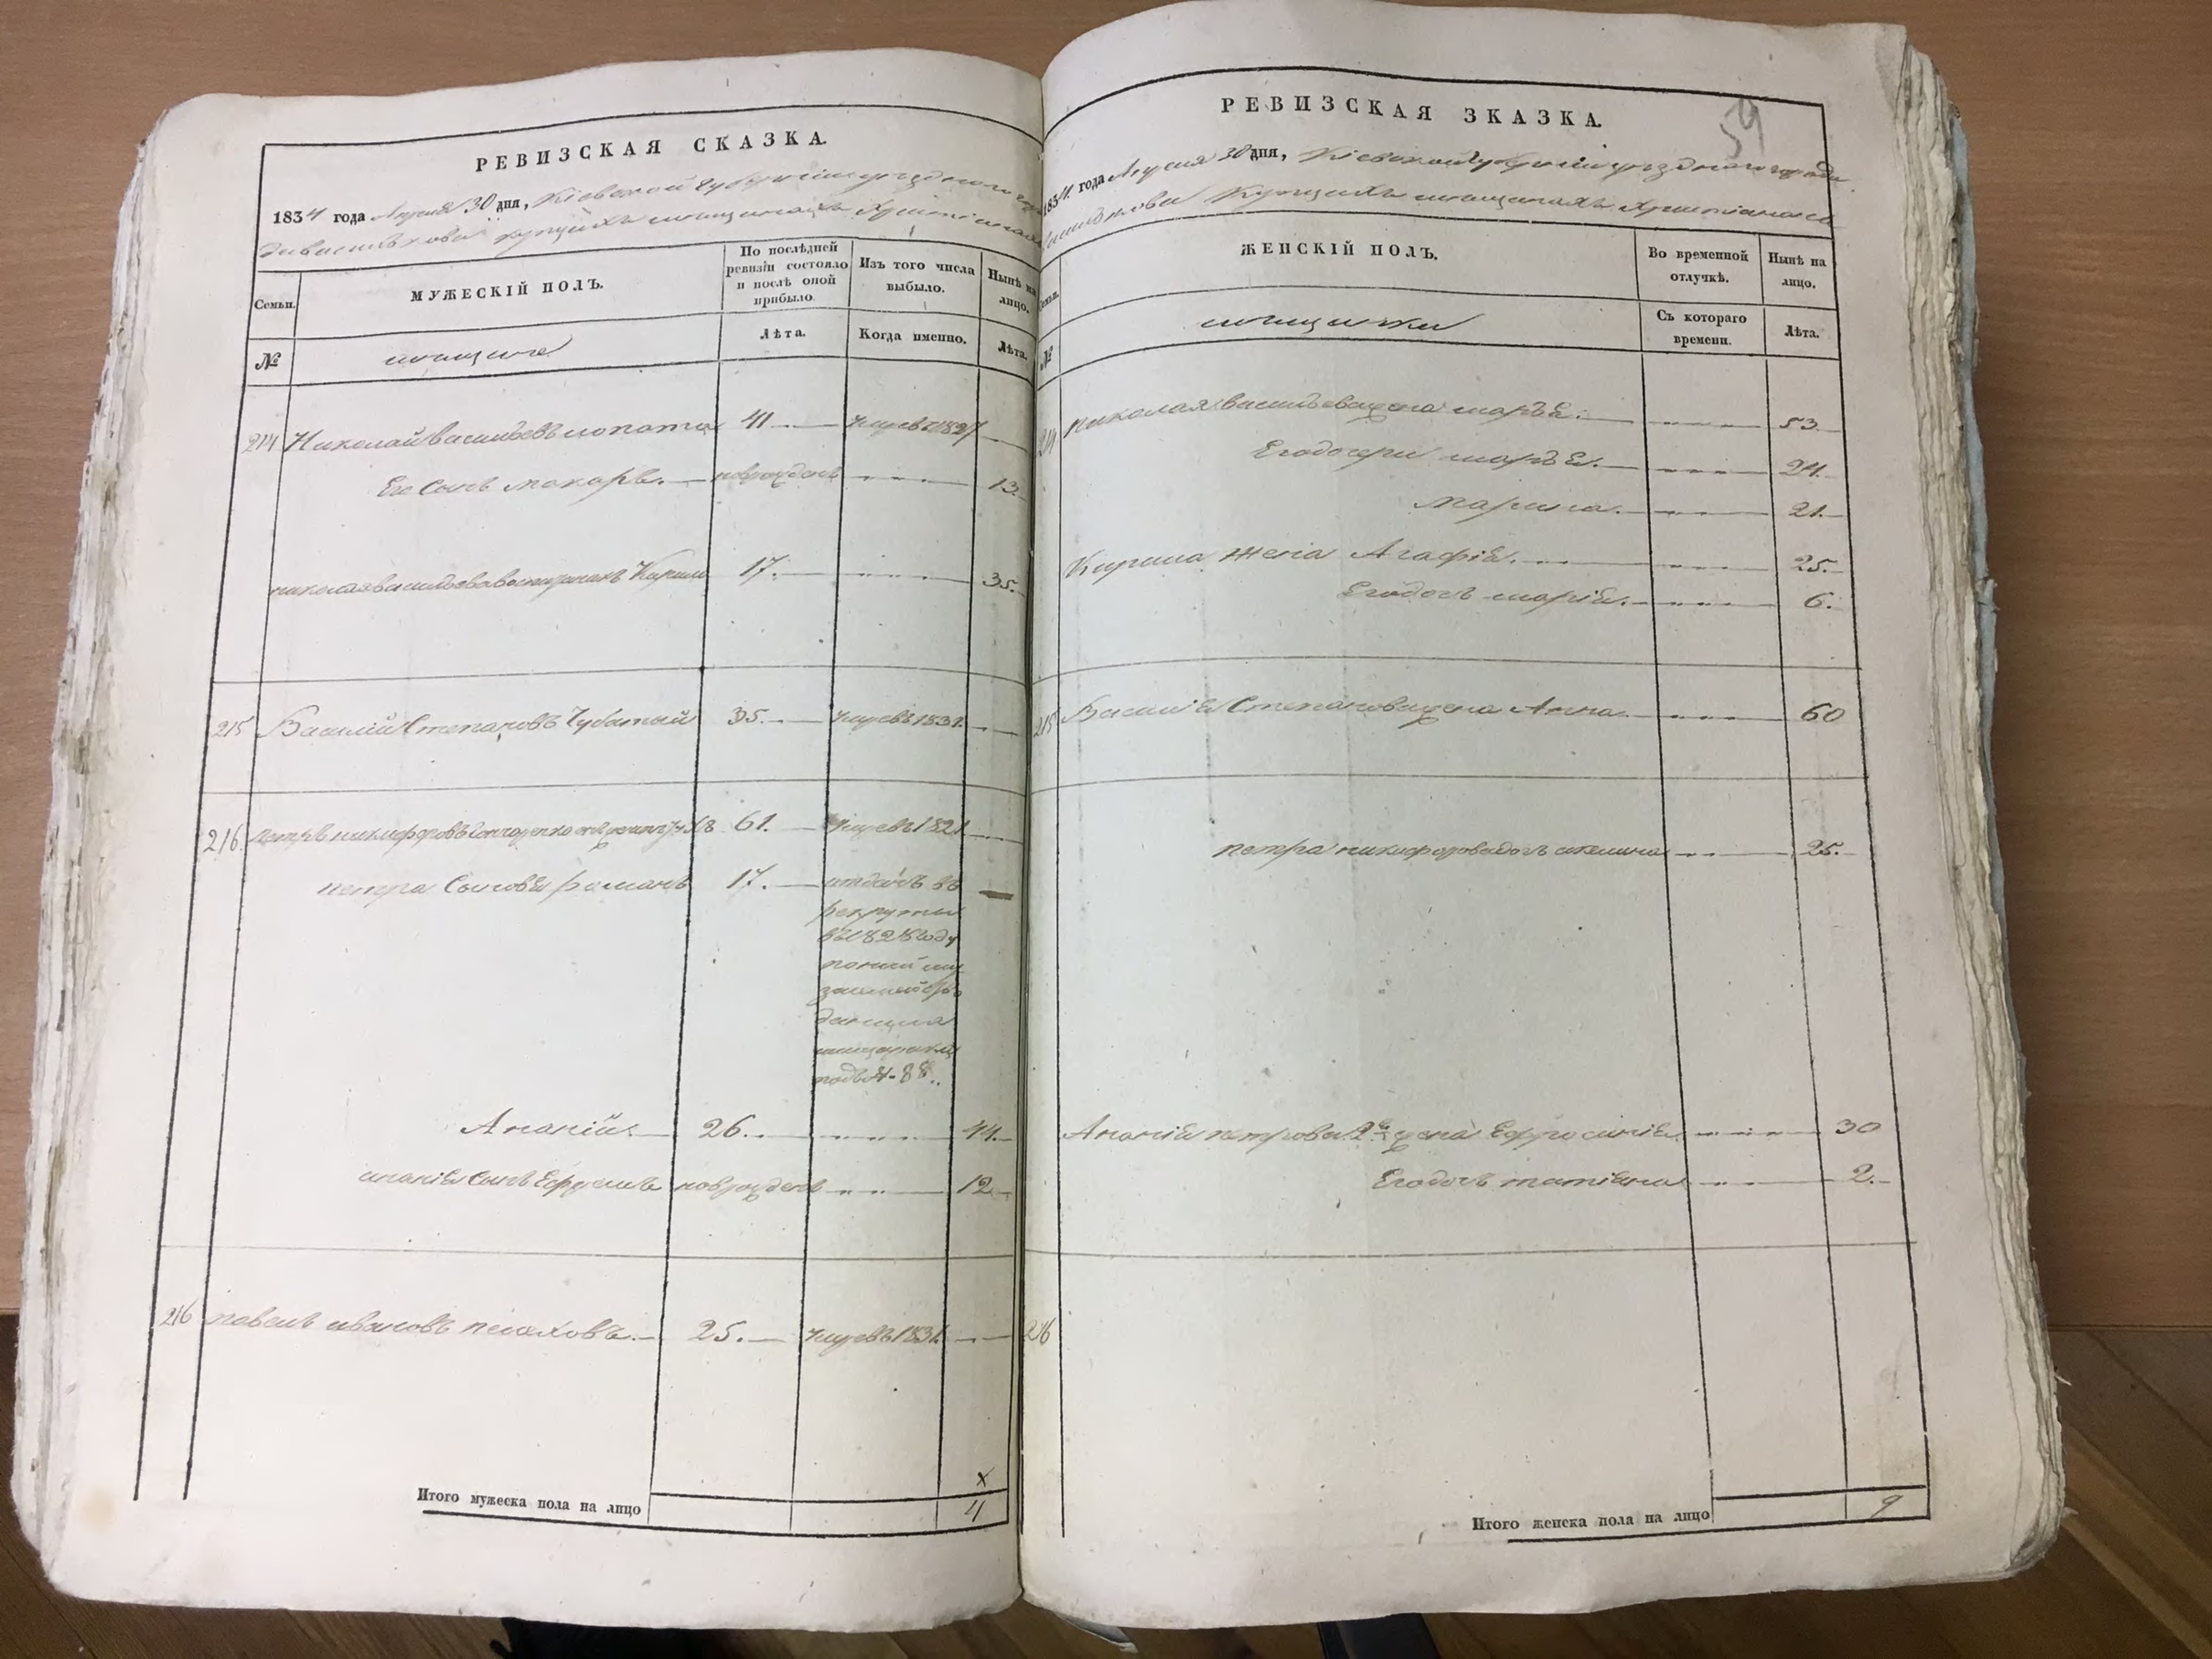 РЕВИЗСКАЯ СКАЗКА.
1834 года Апреля 30 дня, Кіевской губерніи уезднаго
Василькова купцахъ мещанахъ християнахъ
Семьи.
МУЖЕСКІЙ ПОЛЪ.
По послѣдней ревизіи состояло и послѣ оной прибыло.
Изъ того числа выбыло.
Нынѣ на лицо.
№
мещане
Лѣта.
Когда именно.
Лѣта.
214 Николай Васильевъ лопата 41. умре въ 1827
Его Сынъ макаръ. новрожденъ 13.
николая васильева воспитаникъ Кирило 17. 35.
215 Василий Степановъ Чубатый 35. умре въ 1831.
216. петръ никифоровъ 61. умре въ 1821
петра Сыновья романъ 17. отданъ въ
рекруты
въ 1828 году
Ананій. 26. 44.
ананія Сынъ Ефремъ новрожденъ 12
216 павелъ ивановъ пелеховъ. 25. умре въ 1831.
Итого мужеска пола на лицо
x
4
РЕВИЗСКАЯ ЗКАЗКА.
59
1834 года Апреля 30 дня, Кіевской губерніи уезднаго города
Василькова Купцахъ мещанахъ християнахъ
Семьи.
ЖЕНСКІЙ ПОЛЪ.
Во временной отлучкѣ.
Нынѣ на лицо.
№
мещанки
Съ котораго времени.
Лѣта.
214 Николая васильева жена марья. 53.
Его дочери марья. 24.
Марина. 21.
Кирила жена Агафія. 25.
Его дочь марія. 6.
215 Василія Степанова жена Анна. 60
петра никифорова дочь акелина 25.
Ананія петрова 2я жена Ефросинія 30
Его дочь татіяна 2.
216
Итого женска пола на лицо
9